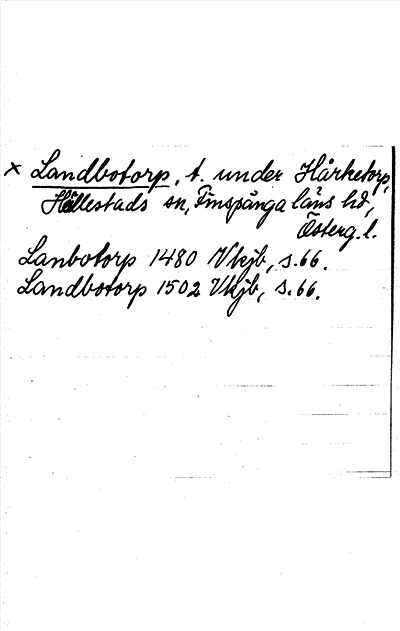 x Landbotorp, t. under Hårketorp,
Hällestads sn, Finspånga läns hd,
Österg. l.
Lanbotorp 1480 Vkjb, s. 66.
Landbotorp 1502 Vkjb, s. 66.